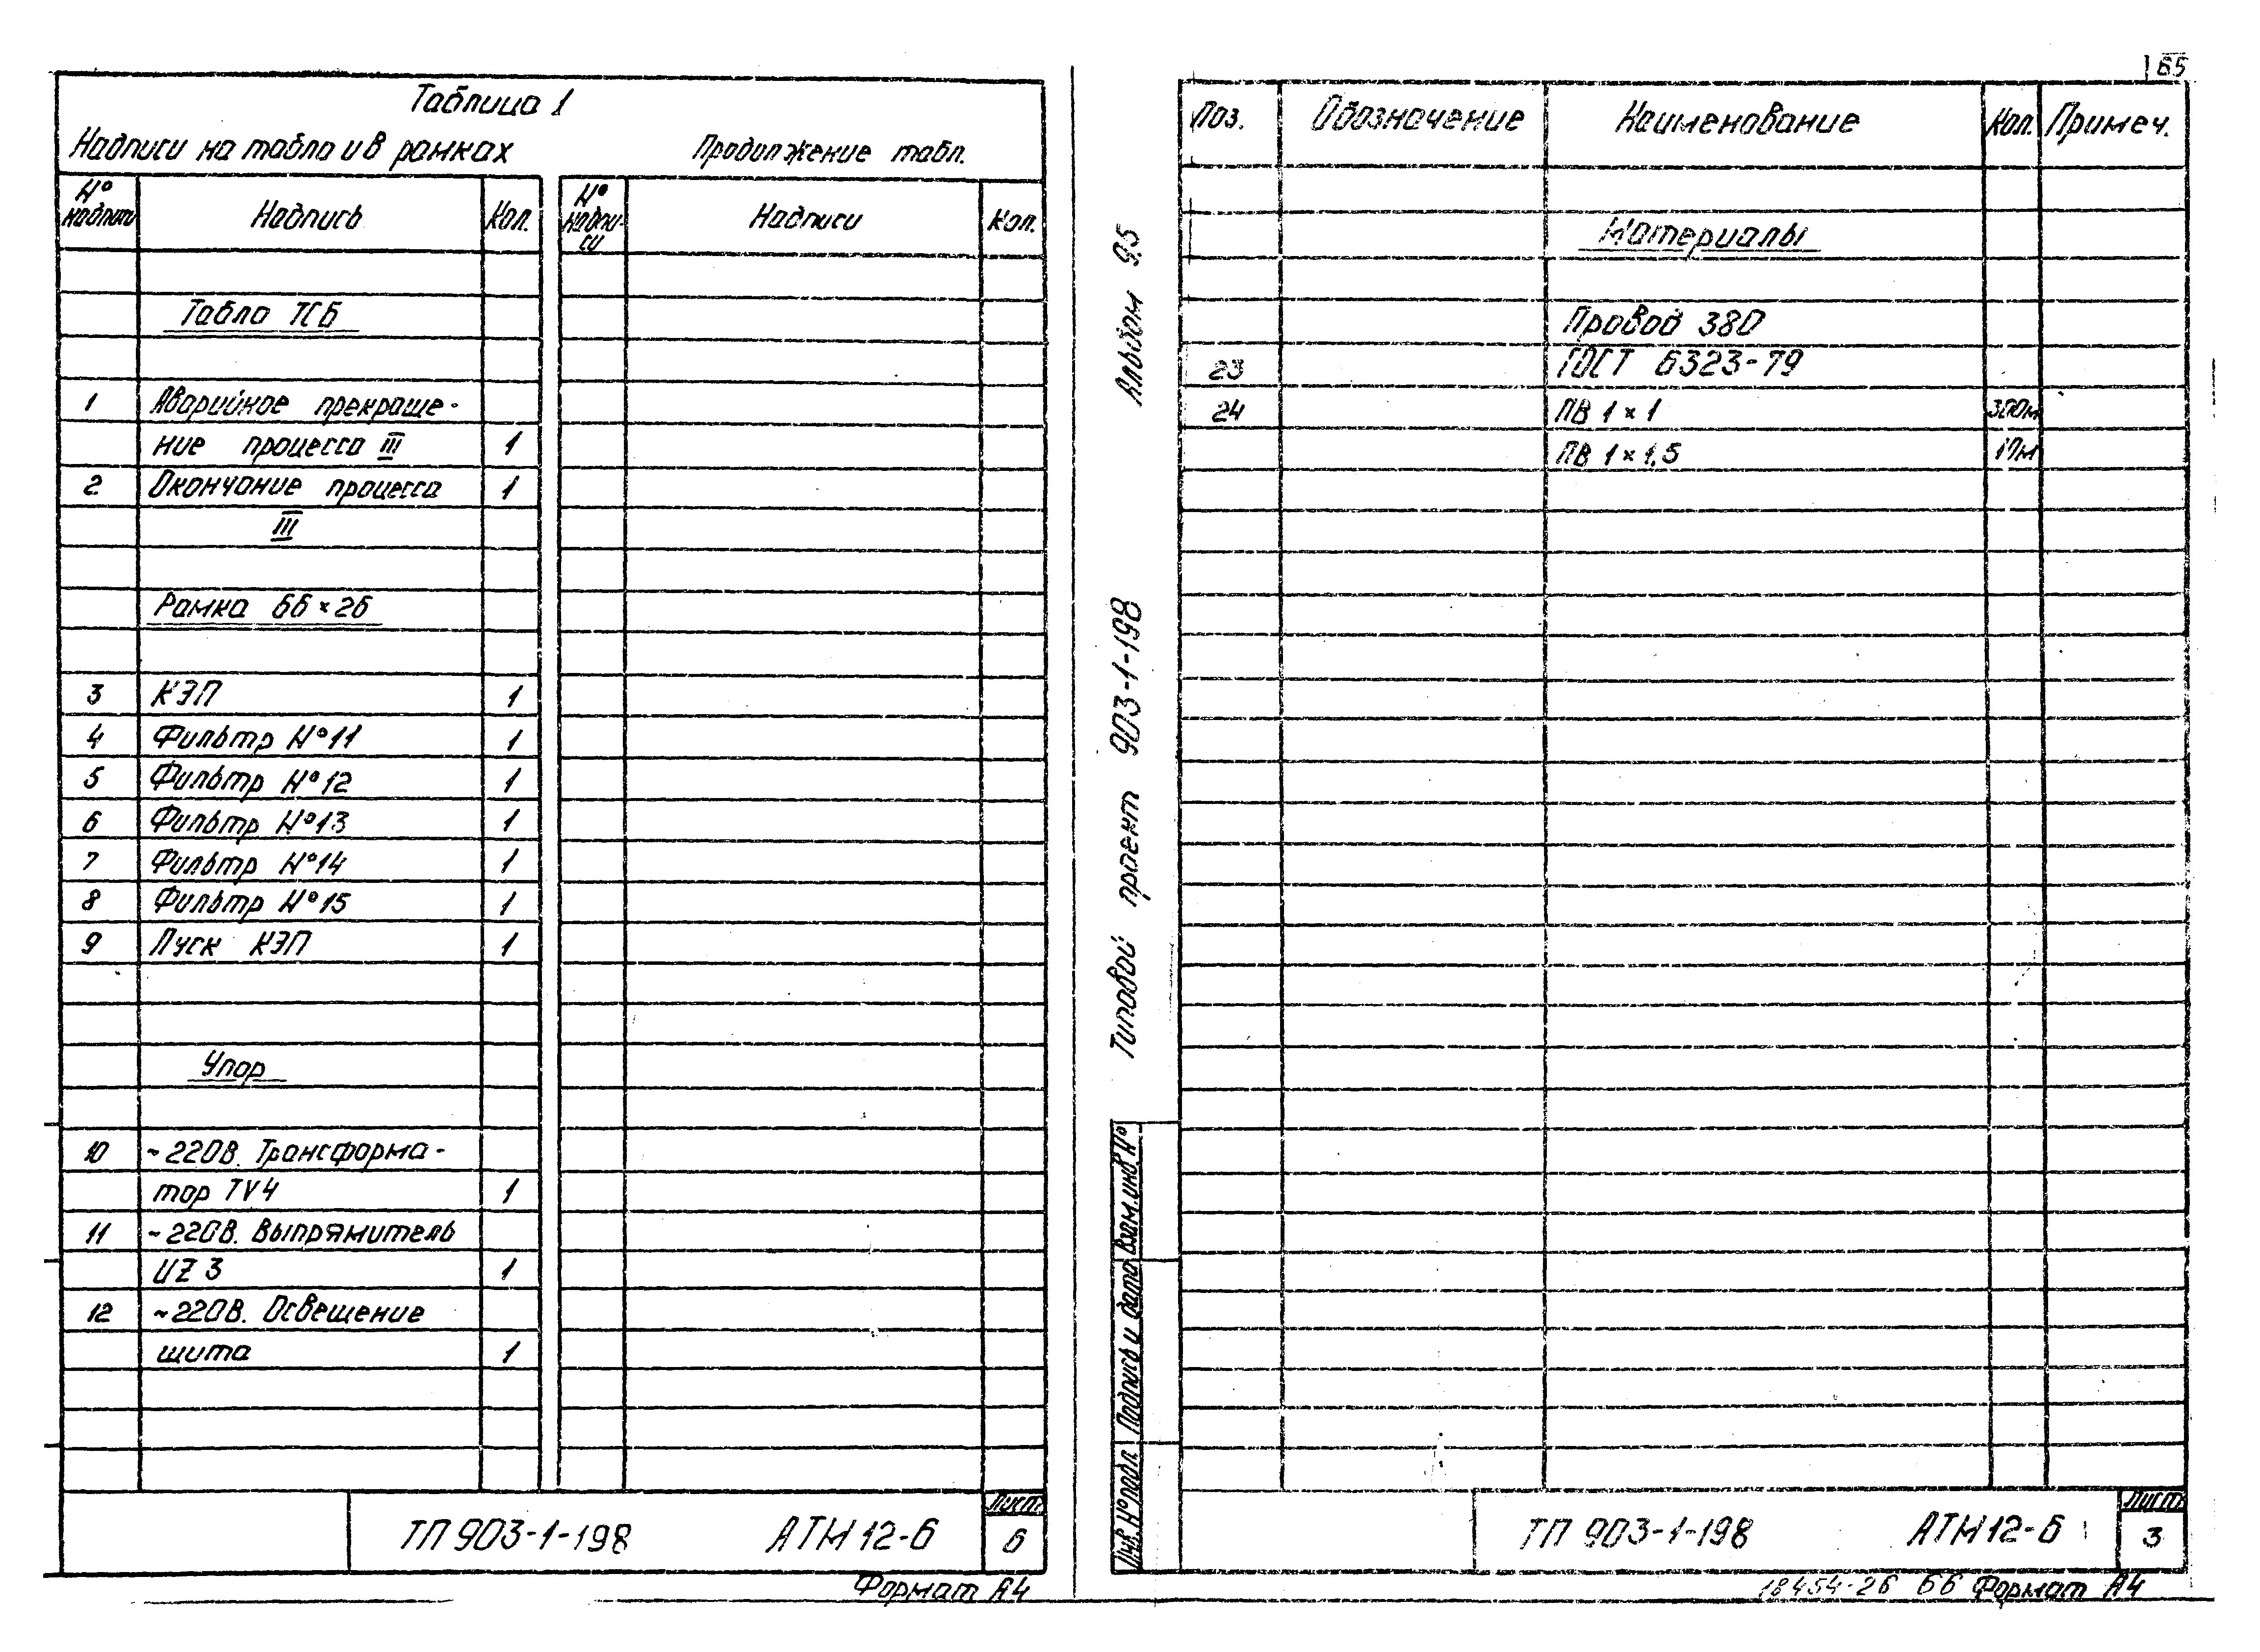 Таблица 1
Надписи на табло и в рамках
Продолжение табл.
№ надписи Надпись Кол. № надписи Надписи Кол.
Табло ТСБ
1 Аварийное прекраще-
ние процесса III 1
2 Окончание процесса 1
III
Рамка 66×26
3 КЭП 1
4 Фильтр №11 1
5 Фильтр №12 1
6 Фильтр №13 1
7 Фильтр №14 1
8 Фильтр №15 1
9 Пуск КЭП 1
Упор
10 ~220В. Трансформа-
тор TV4 1
11 ~220В. Выпрямитель
UZ 3 1
12 ~220В. Освещение
щита 1
ТП 903-1-198 АТМ 12-6
Лист
6
Формат А4
65
Альбом 9.5
Типовой проект 903-1-198
Взам.инв.№
Подпись и дата
Инв.№подл.
Поз. Обозначение Наименование Кол. Примеч.
Материалы
Провод 380
23 ГОСТ 6323-79
24 ПВ 1×1
ПВ 1×1,5
ТП 903-1-198 АТМ 12-6
Лист
3
18454-26 66 Формат А4